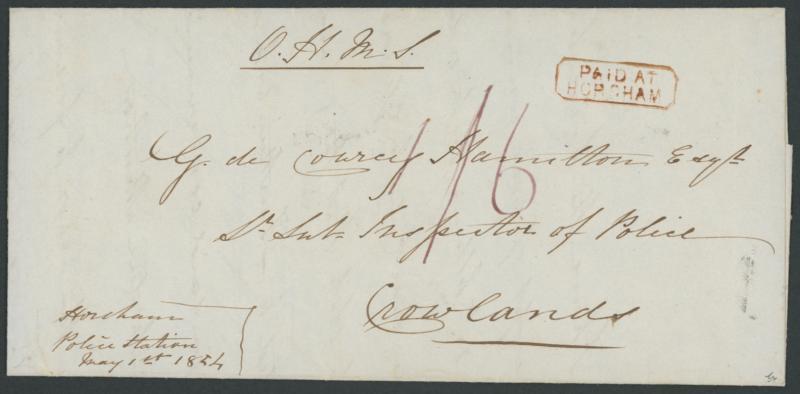 O. H. M. S.
PAID AT
HORSHAM
1/6
G. de Courcy Hamilton Esqr
Sr Sub Inspector of Police
Crowlands
Horsham
Police Station
May 1st 1854